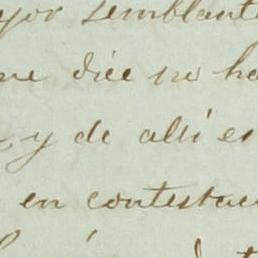 yor semblante
me dice no ha
y de alli es
en contestac